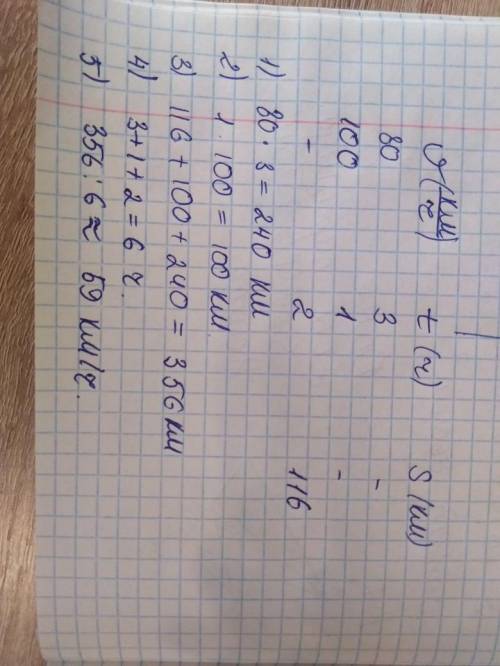 V(км/ч) t(ч) S(км)
80 3 -
100 1 -
- 2 116
1) 80 · 3 = 240 км
2) 1 · 100 = 100 км.
3) 116 + 100 + 240 = 356 км
4) 3+1+2 = 6 ч.
5) 356 : 6 ≈ 59 км/ч.